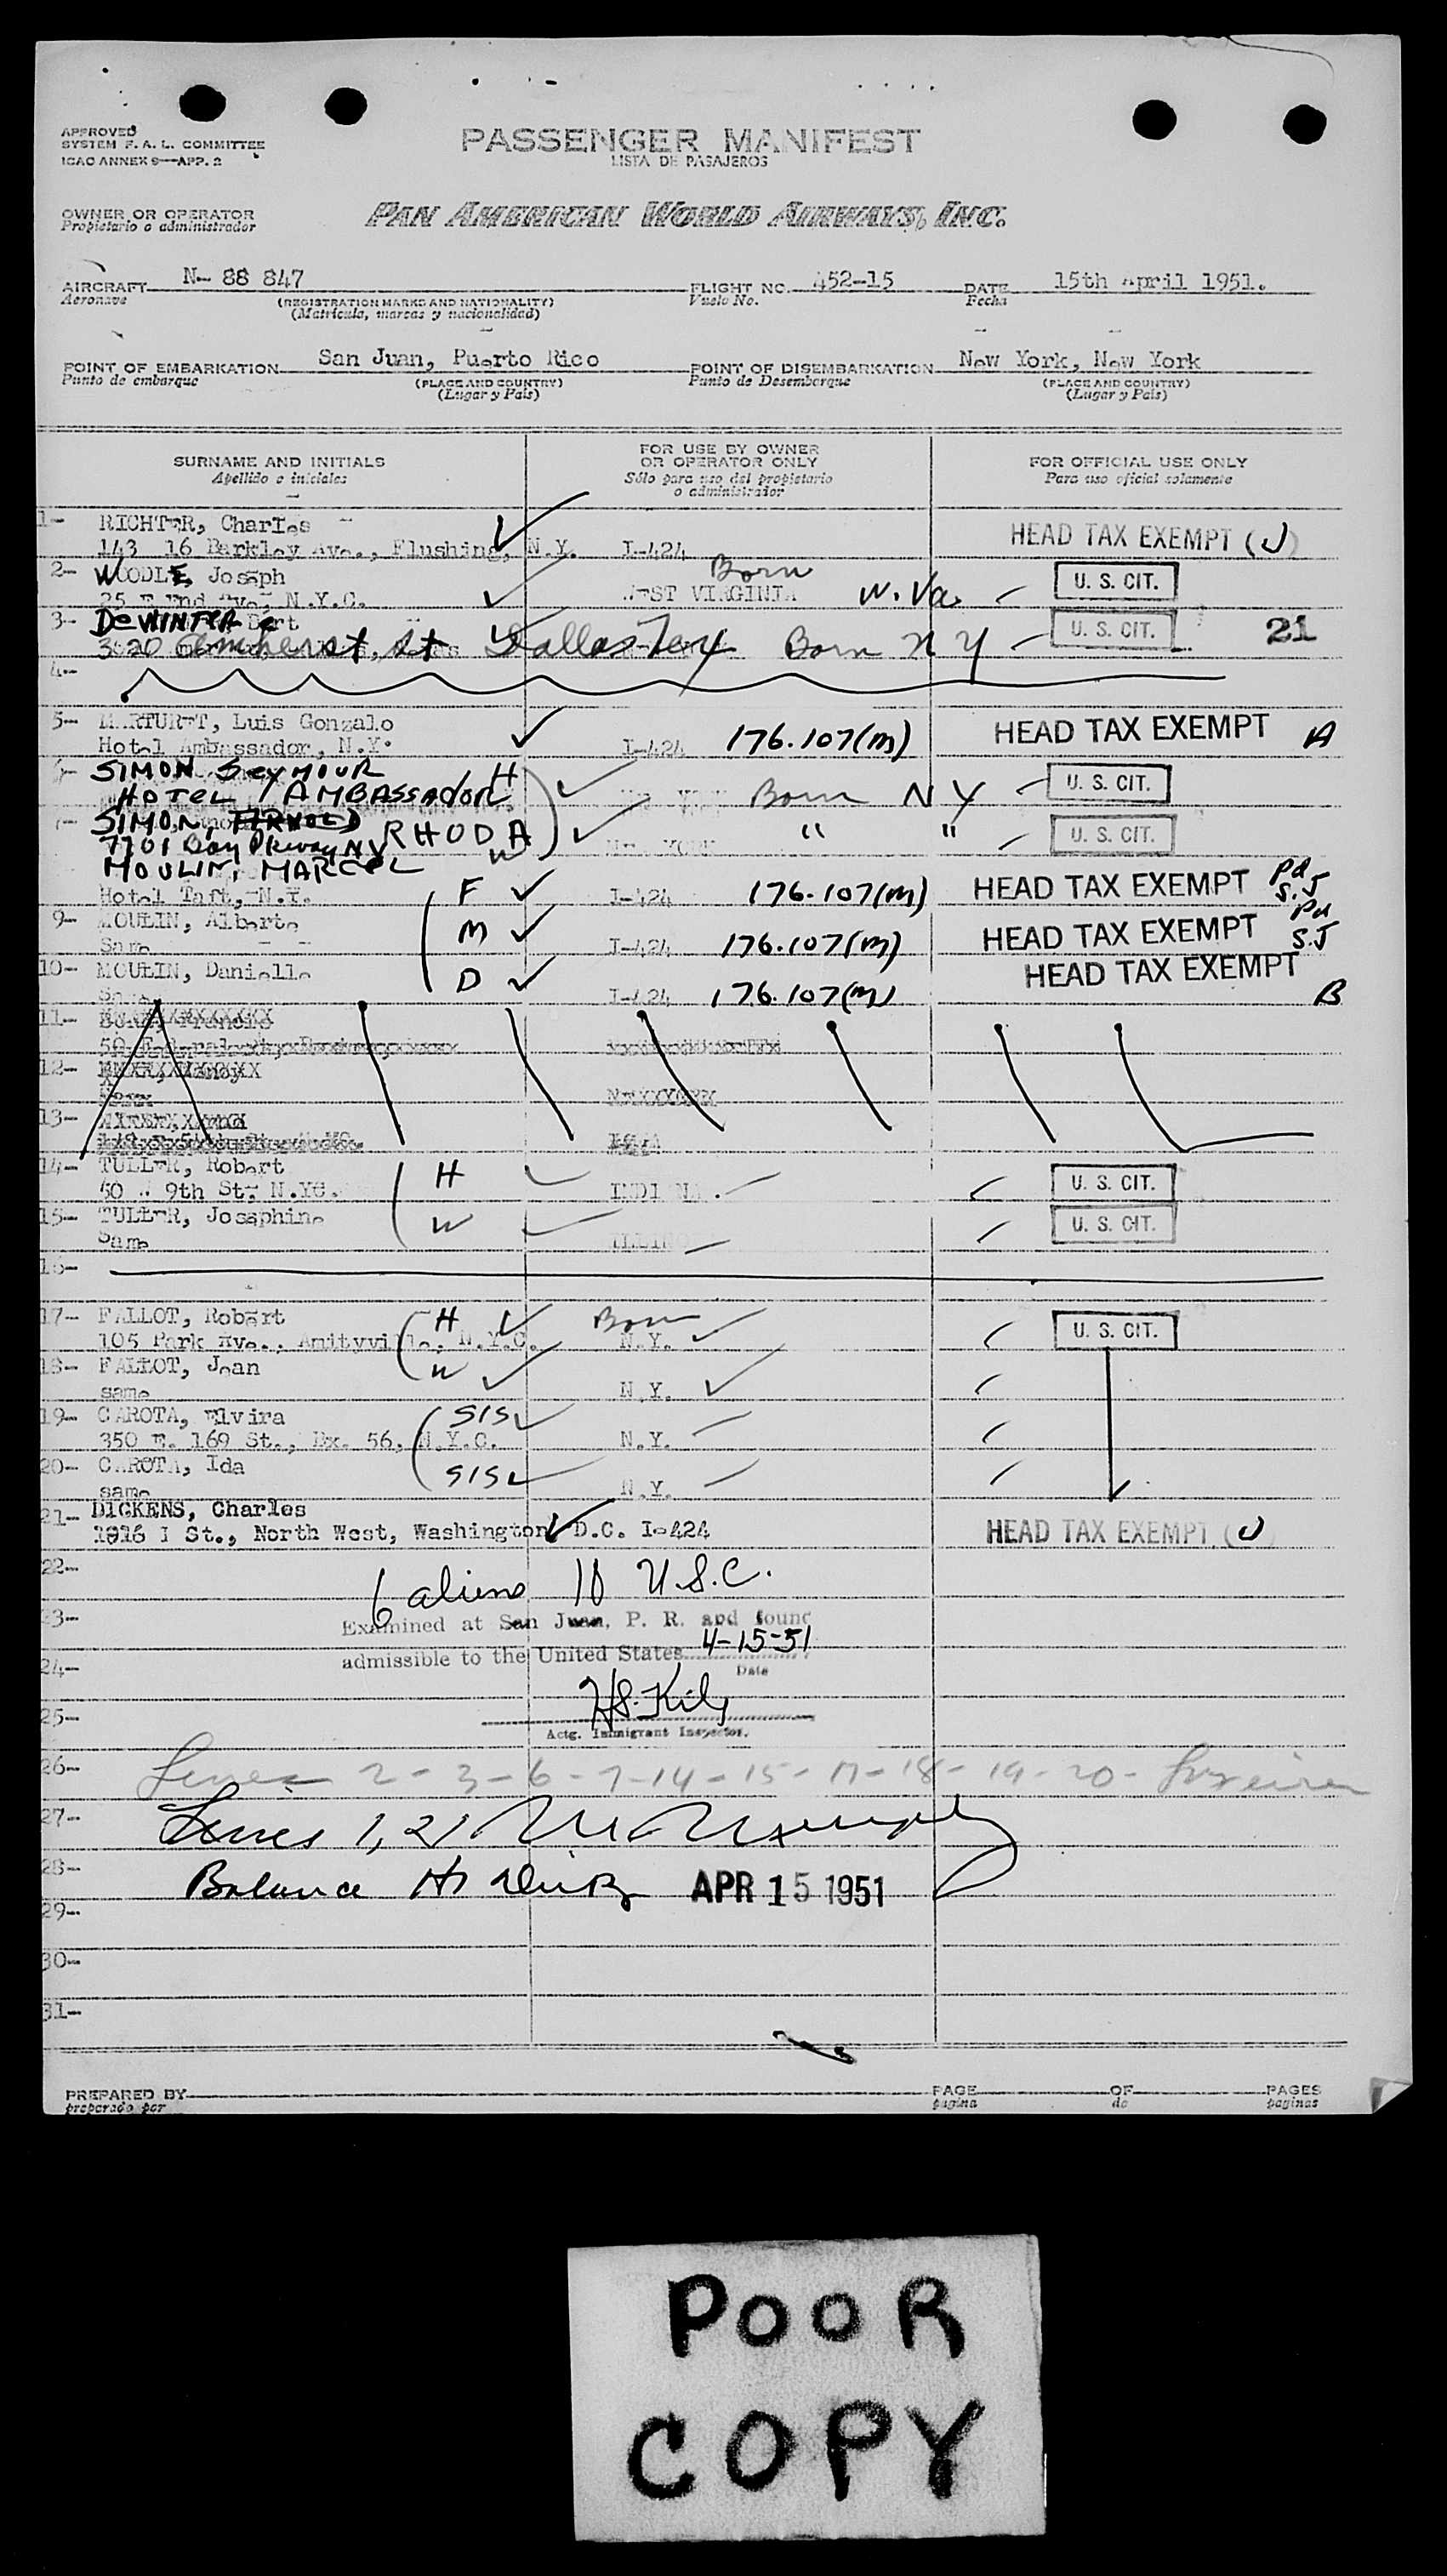 APPROVED
SYSTEM F. A. L. COMMITTEE
ICAO ANNEX 9—APP. 2
PASSENGER MANIFEST
LISTA DE PASAJEROS
OWNER OR OPERATOR
Propietario o administrador
PAN AMERICAN WORLD AIRWAYS, INC.
AIRCRAFT N- 88 847 FLIGHT NO. 452-15 DATE 15th April 1951.
Aeronave (REGISTRATION MARKS AND NATIONALITY) Vuelo No. Fecha
(Matricula, marcas y nacionalidad)
POINT OF EMBARKATION San Juan, Puerto Rico POINT OF DISEMBARKATION New York, New York
Punto de embarque (PLACE AND COUNTRY) Punto de Desembarque (PLACE AND COUNTRY)
(Lugar y Pais) (Lugar y Pais)
SURNAME AND INITIALS FOR USE BY OWNER OR OPERATOR ONLY FOR OFFICIAL USE ONLY
Apellido e iniciales Sólo para uso del propietario o administrador Para uso oficial solamente
1- RICHTER, Charles
143 16 Barkley Ave., Flushing, N.Y. I-424 HEAD TAX EXEMPT (J)
2- WOODLE, Joseph Born
25 E End Ave, N.Y.C. WEST VIRGINIA W. Va. U. S. CIT.
3- DeWINTER
3020 Amherst St Dallas Tex Born N Y U. S. CIT. 21
4-
5- MARTURET, Luis Gonzalo
Hotel Ambassador, N.Y. I-424 176.107(m) HEAD TAX EXEMPT A
6- SIMON SEYMOUR H
HOTEL AMBASSADOR Born NY U. S. CIT.
7- SIMON, RHODA W
7701 Bay Pkway NY " " U. S. CIT.
MOULIN, MARCEL
Hotel Taft, N.Y. F I-424 176.107(m) HEAD TAX EXEMPT Pd S.J
9- MOULIN, Alberte
Same M I-424 176.107(m) HEAD TAX EXEMPT Pd S.J
10- MOULIN, Danielle
Same D I-424 176.107(m) HEAD TAX EXEMPT B
11-
12-
13-
14- TULLER, Robert H
50 . 9th St. N.YC. INDIANA. U. S. CIT.
15- TULLER, Josephine W
Same U. S. CIT.
16-
17- FALLOT, Robert H Born
105 Park Ave., Amityville, N.Y.C. N.Y. U. S. CIT.
18- FALLOT, Jean W
same N.Y.
19- CAROTA, Elvira SIS
350 E. 169 St., Bx. 56, N.Y.C. N.Y.
20- CAROTA, Ida SIS
same N.Y.
21- DICKENS, Charles
1816 I St., North West, Washington D.C. I-424 HEAD TAX EXEMPT (J)
22-
6 aliens 10 U.S.C.
23- Examined at San Juan, P. R. and found
24- admissible to the United States 4-15-51
Date
25-
Actg. Immigrant Inspector.
26- Lines 2-3-6-7-14-15-17-18-19-20-
27- Lines 1, 21
28- Balance APR 15 1951
29-
30-
31-
PREPARED BY PAGE OF PAGES
preparado por pagina de paginas
POOR
COPY